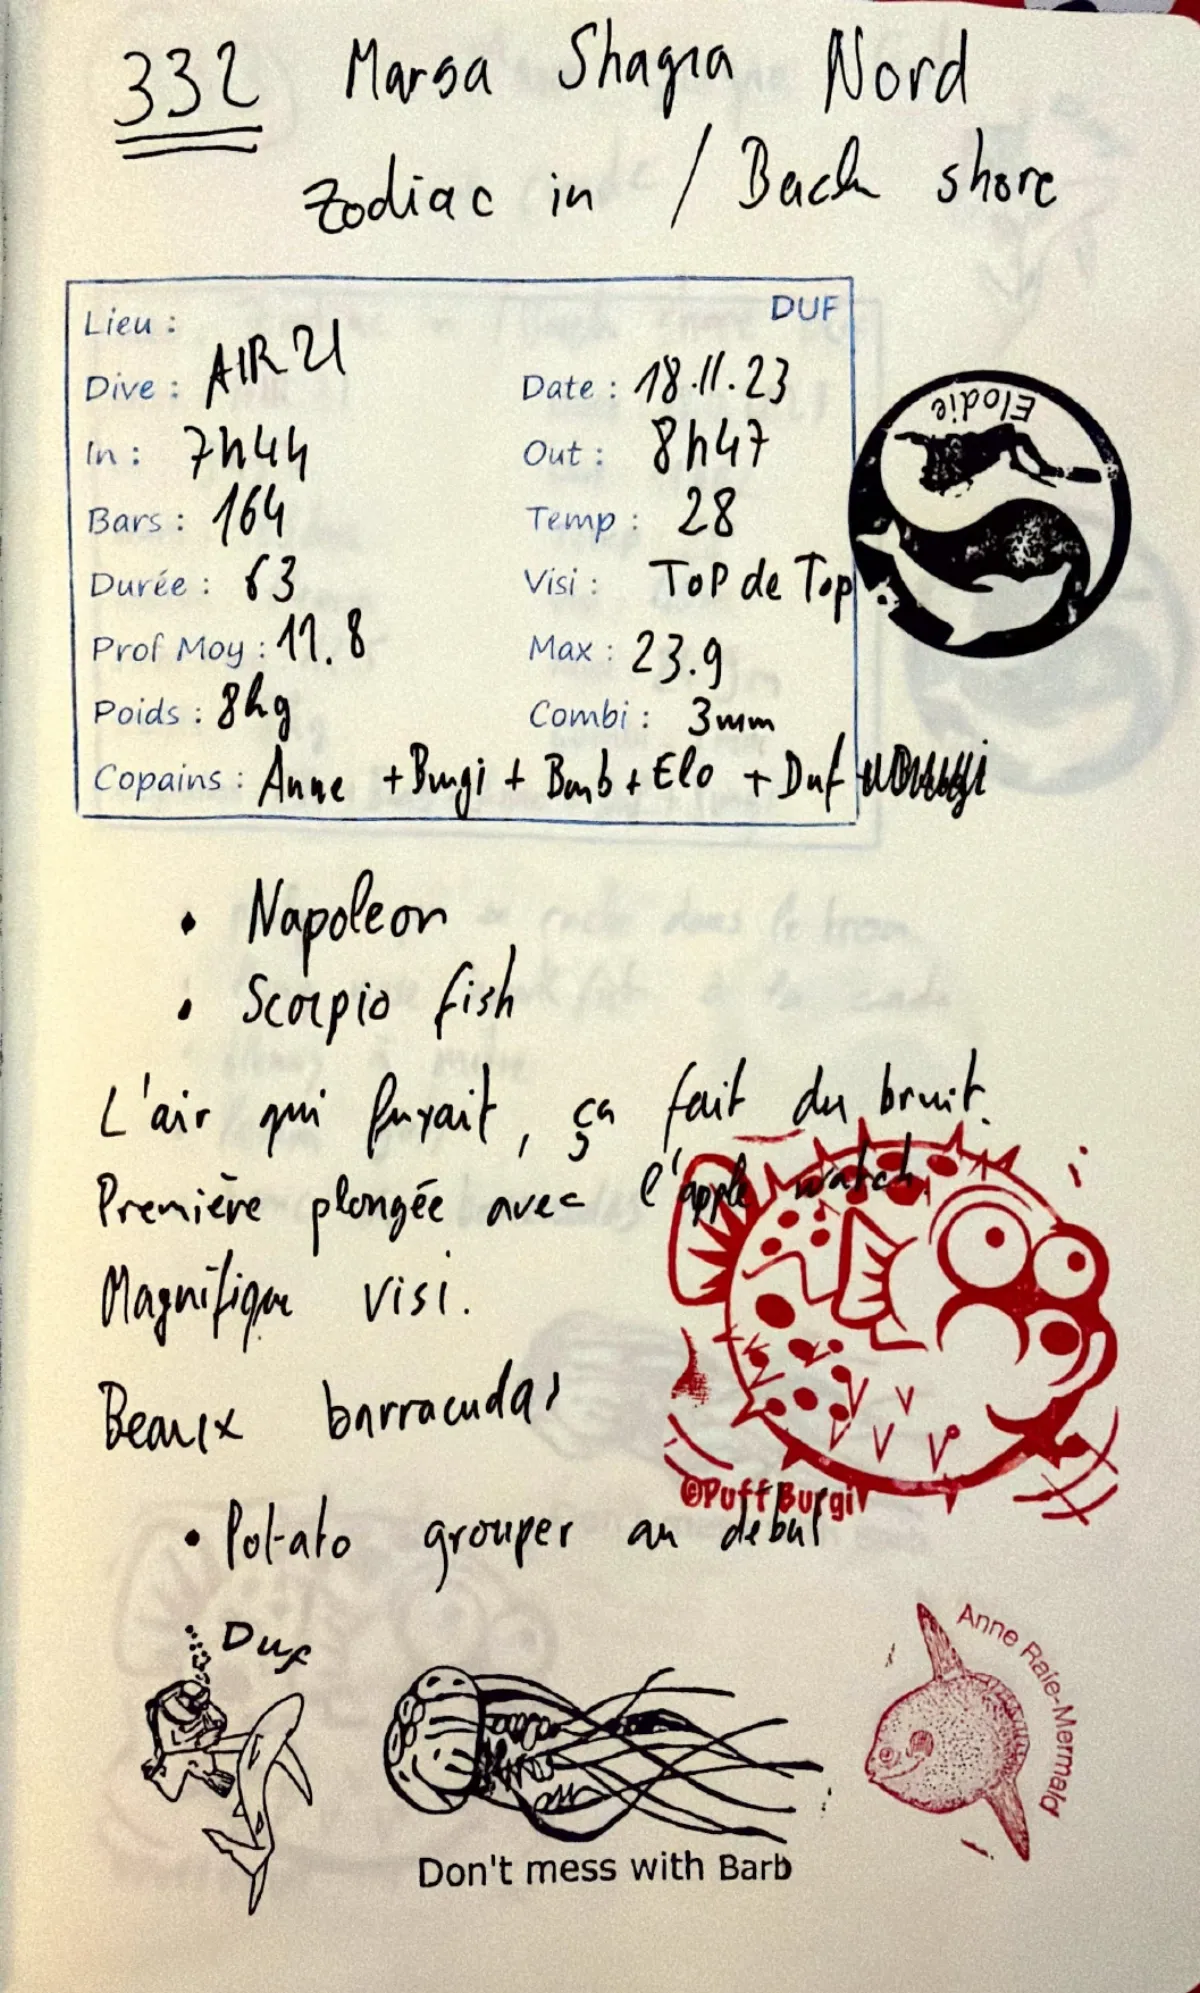 332 Marsa Shagra Nord
Zodiac in / Back shore
DUF
Lieu :
Dive : AIR 21 Date : 18.11.23
In : 7h44 Out : 8h47
Bars : 164 Temp : 28
Durée : 63 Visi : Top de Top
Prof Moy : 11.8 Max : 23.9
Poids : 8kg Combi : 3mm
Copains : Anne + Burgi + Barb + Elo + Duf
Elodie
• Napoleon
• Scorpio fish
L'air qui fuyait, ça fait du bruit.
Première plongée avec l'apple watch.
Magnifique visi.
Beaux barracudas
©Puff Burgi
• Potato grouper au début
Duf
Anne Raie-Mermald
Don't mess with Barb